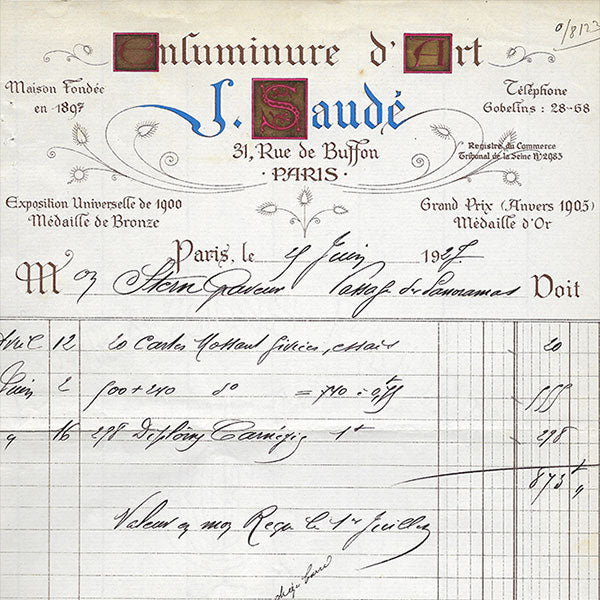 0/8123
Enluminure d'Art
Maison Fondée
en 1897
Téléphone
Gobelins : 28-68
J. Saudé
31, Rue de Buffon
·PARIS·
Registre du Commerce
Tribunal de la Seine Nº 2985
Exposition Universelle de 1900
Médaille de Bronze
Grand Prix (Anvers 1905)
Médaille d'Or
Paris, le Juin 1927
M Stern Graveur Passage des Panoramas Doit
Avril 12 20 Cartes Mossant givrées, essais 20
Juin 2 500 + 240 do = 740 à 0,75 555
16 298 Diplômes Carnégie 1f 298
873
Valeur en mon Reçu le 1er Juillet